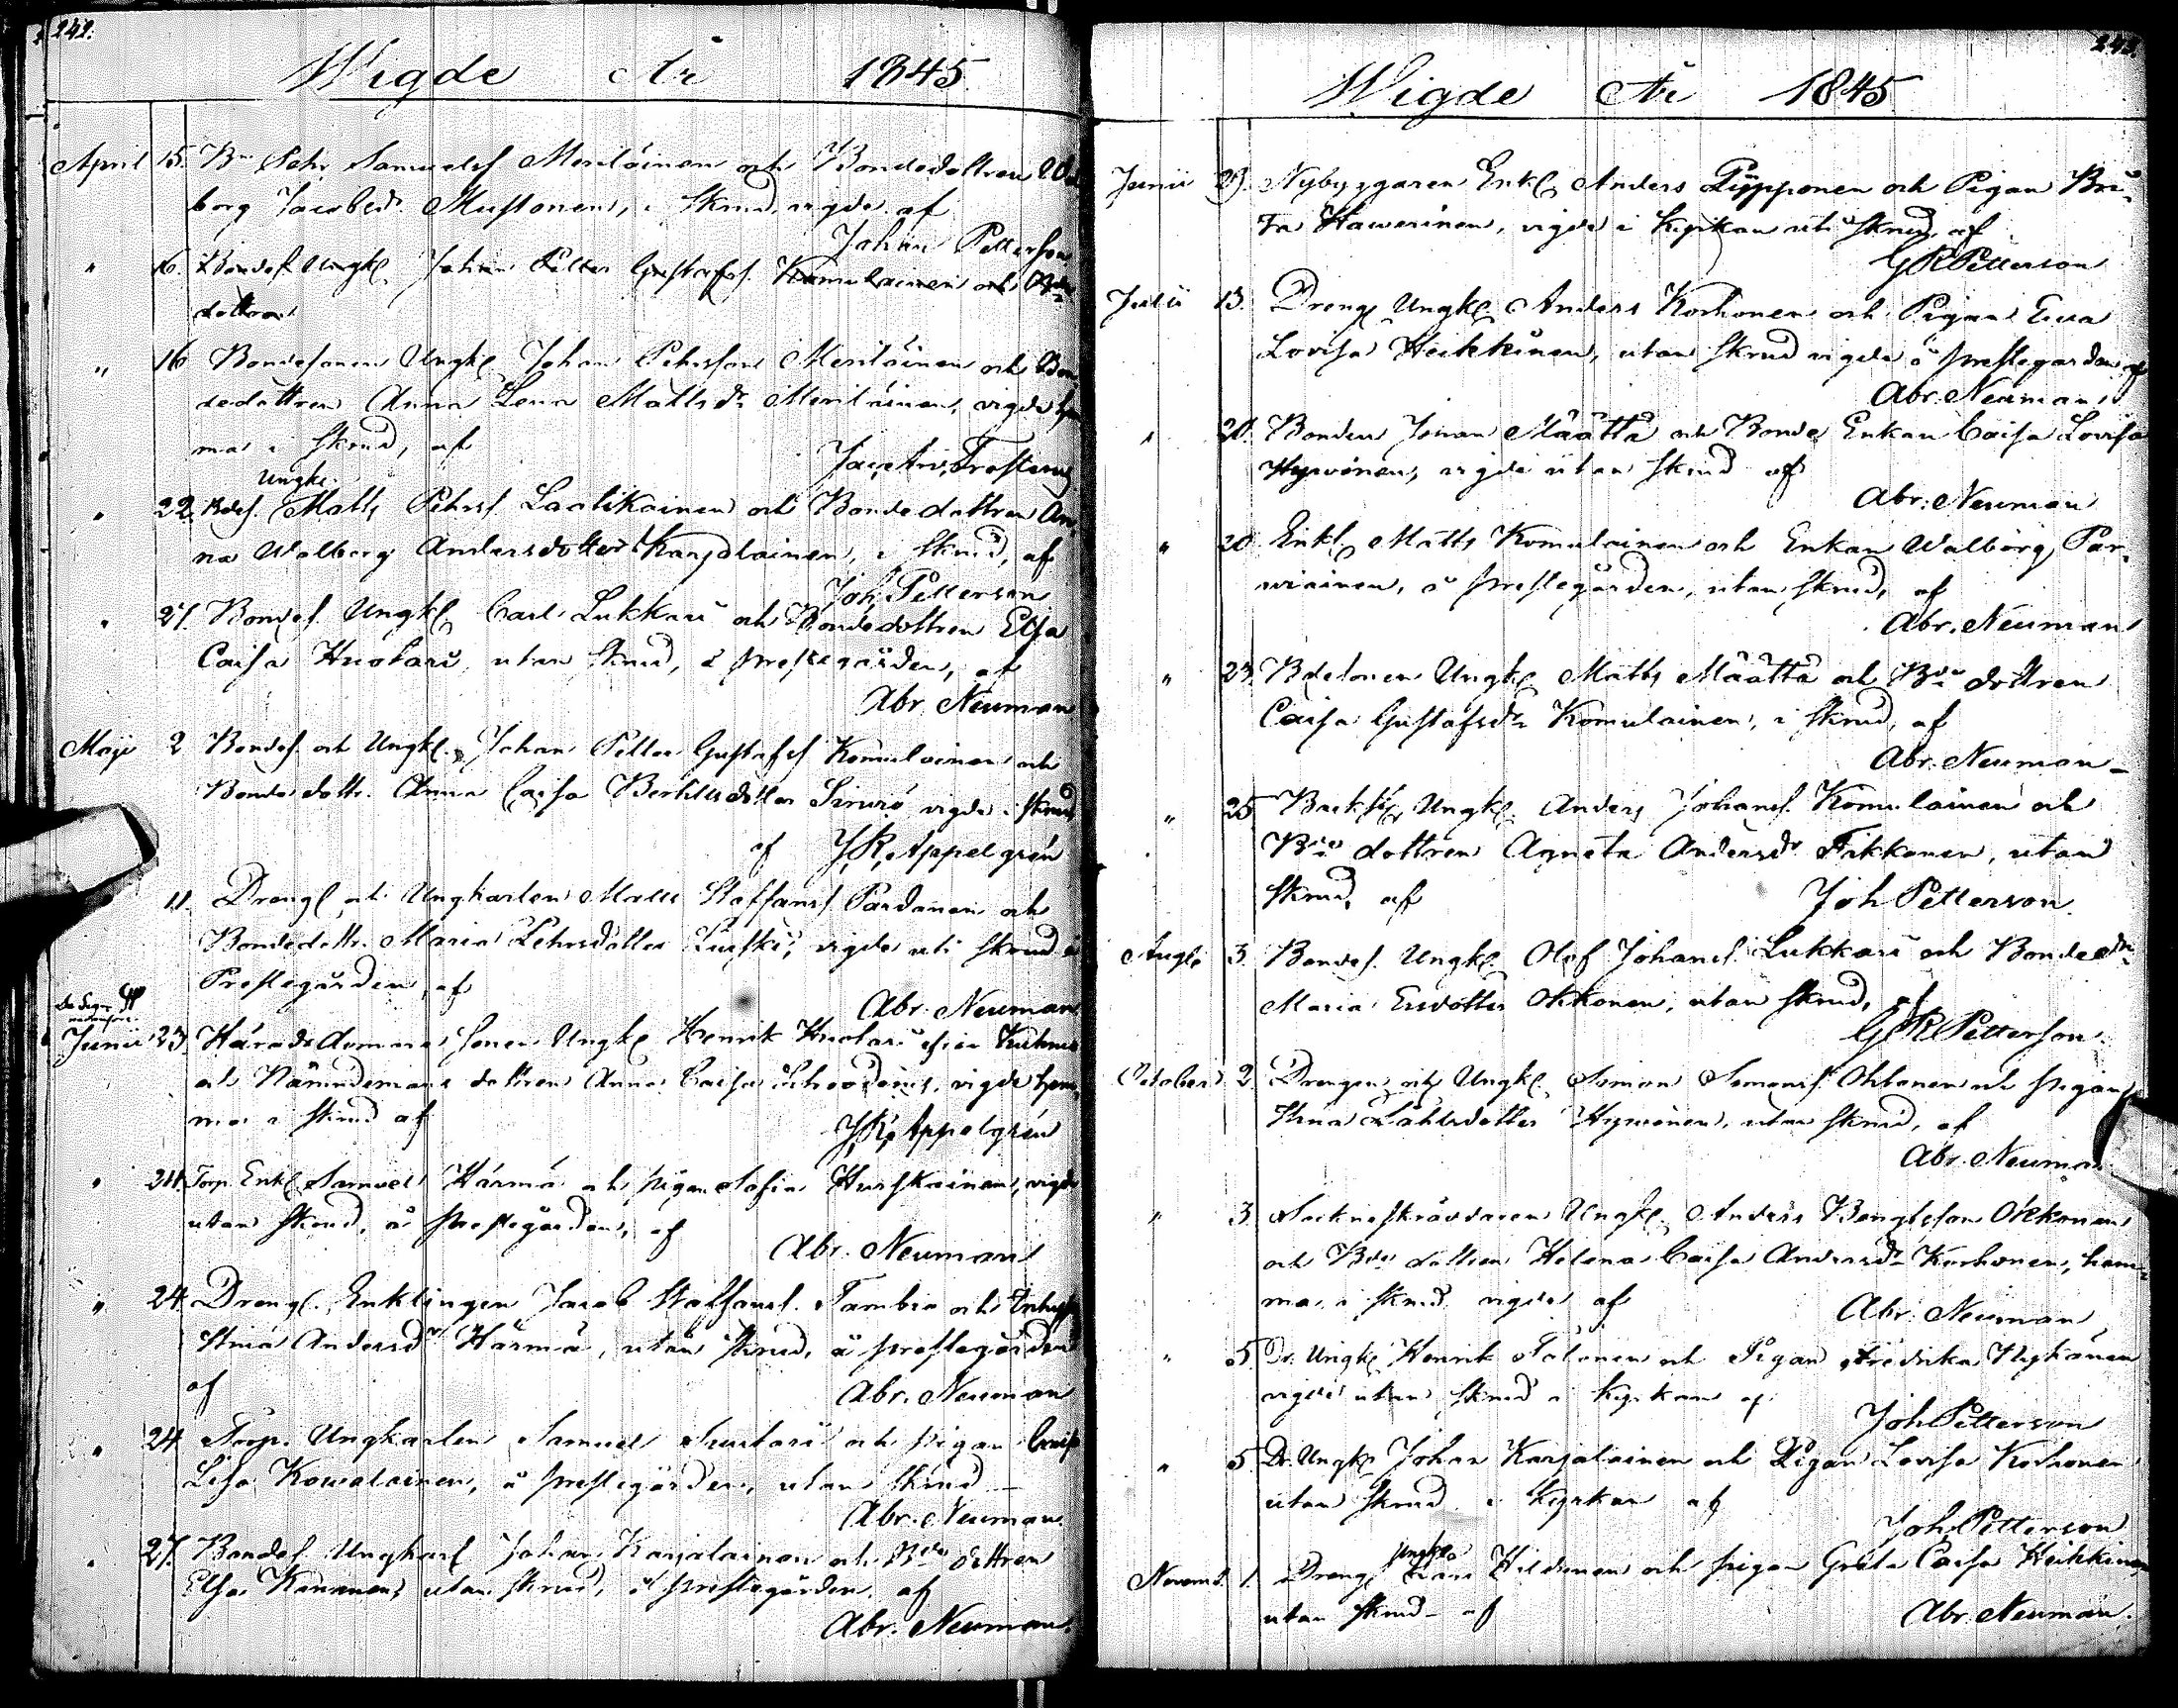 242.
Wigde År 1845.
April 15. Bn Pehr Samuelss. Meriläinen och Bondedottren Wal
borg Jacobsdr. Mustonen, i skrud vigde af
Johan Petterson
" 16. Bondes. Ungkl. Johan Petter Gustafss. Komulainen och Bde
dottren
" 16 Bondesonen Ungkl. Johan Pehrsson Meriläinen och Bon
dedottren Anna Lena Mattsdr Meriläinen, vigde hem
ma i skrud, af
Jac. Arv. Frosterus
Ungkl.
" 22. Bdes. Matts Pehrss. Laatikainen och Bondedottren An
na Walborg Andersdotter Karjalainen, i skrud, af
Joh. Petterson
" 27. Bondes. Ungkl. Carl Lukkari och Bondedottren Elsa
Caisa Huotari utan skrud, å prestegården, af
Abr. Neuman
Maji 2 Bondes. och Ungkl. Johan Petter Gustafss Komulainen och
Bondedottr. Anna Caisa Bertilsdotter Sirviö vigde i skrud
af J. R. Appelgrén
11. Drengl. och Ungkarlen Matts Staffanss Pardanen och
Bondedottr. Maria Pehrsdotter vigde uti skrud å
Prestegården, af
Abr. Neuman
Junii 23. Härads Domare Sonen Ungkl Henrik Huotari ifrån Kuhmo
och Nämndemans dottren Anna Caisa Schroderus, vigde hem
ma i skrud af
J. R. Appelgrén
" 24. Torp. Enkl. Samuel Härmä och pigan Sofia Hurskainen, vigde
utan skrud, å prestegården, af
Abr. Neuman
" 24. Drengl. Enklingen Jacob Staffanss. Tambio och
Stina Andersdr. Härmä, utan skrud, å prestegården
af
Abr. Neuman
" 24 Torp. Ungkarlen Samuel Suutari och pigan Caisa
Lisa Kowalainen, å prestegården, utan skrud
Abr. Neuman.
" 27. Bondes. Ungkarl Johan Karjalainen och Bde dottren
Elsa Kananen, utan skrud, å prestegården. af
Abr. Neuman.
243.
Wigde År 1845
Junii 29. Nybyggaren Enkl. Anders Pypponen och Pigan Bri
ta Hawerinen, vigde i Kyrkan uti skrud, af
G R Petterson
Julii 13. Drengl Ungkl. Anders Korhonen och Pigan Ewa
Lovisa Heikkinen, utan skrud vigde å prestegården, af
Abr. Neuman
" 20. Bonden Johan Määttä och Bonde Enkan Caisa Lovisa
Hyvönen, vigde utan skrud af
Abr. Neuman
" 20. Enkl. Matts Komulainen och Enkan Walborg Par
wiainen, å prestegården, utan skrud, af
Abr. Neuman
" 23. Bdesonen Ungkl. Matts Määttä och Bde dottren
Caisa Gustafsdr Komulainen, i skrud, af
Abr. Neuman
" 25 Ungkl. Anders Johanss. Komulainen och
Bde dottren Agneta Andersdr Tikkanen, utan
skrud, af
Joh Petterson
Augti 3. Bondes. Ungkl. Olof Johanss. Lukkari och Bondedr
Maria Ersdotter Okkonen, utan skrud, af
G R Petterson
October 2. Drengen och Ungkl. Simon Simonss. Ohtonen och pigan
Stina Hyvönen, utan skrud, af
Abr. Neuman
" 3 Sockneskräddaren Ungkl. Anders Bengtsson Okkonen
och Bde dottren Helena Caisa Andersdr Korhonen, hem
ma i skrud vigde af
Abr. Neuman
" 5 Dr. Ungkl. Henrik Tolonen och Pigan Fredrika Nykänen
vigde utan skrud i Kyrkan af
Joh Petterson
" 5 Dr. Ungkl. Johan Karjalainen och Pigan Lovisa Korhonen
utan skrud i Kyrkan af
Joh Petterson
Ungkl.
Novemb. 1. Drengl Lars Hildunen och pigan Greta Caisa Heikkinen
utan skrud af
Abr. Neuman.